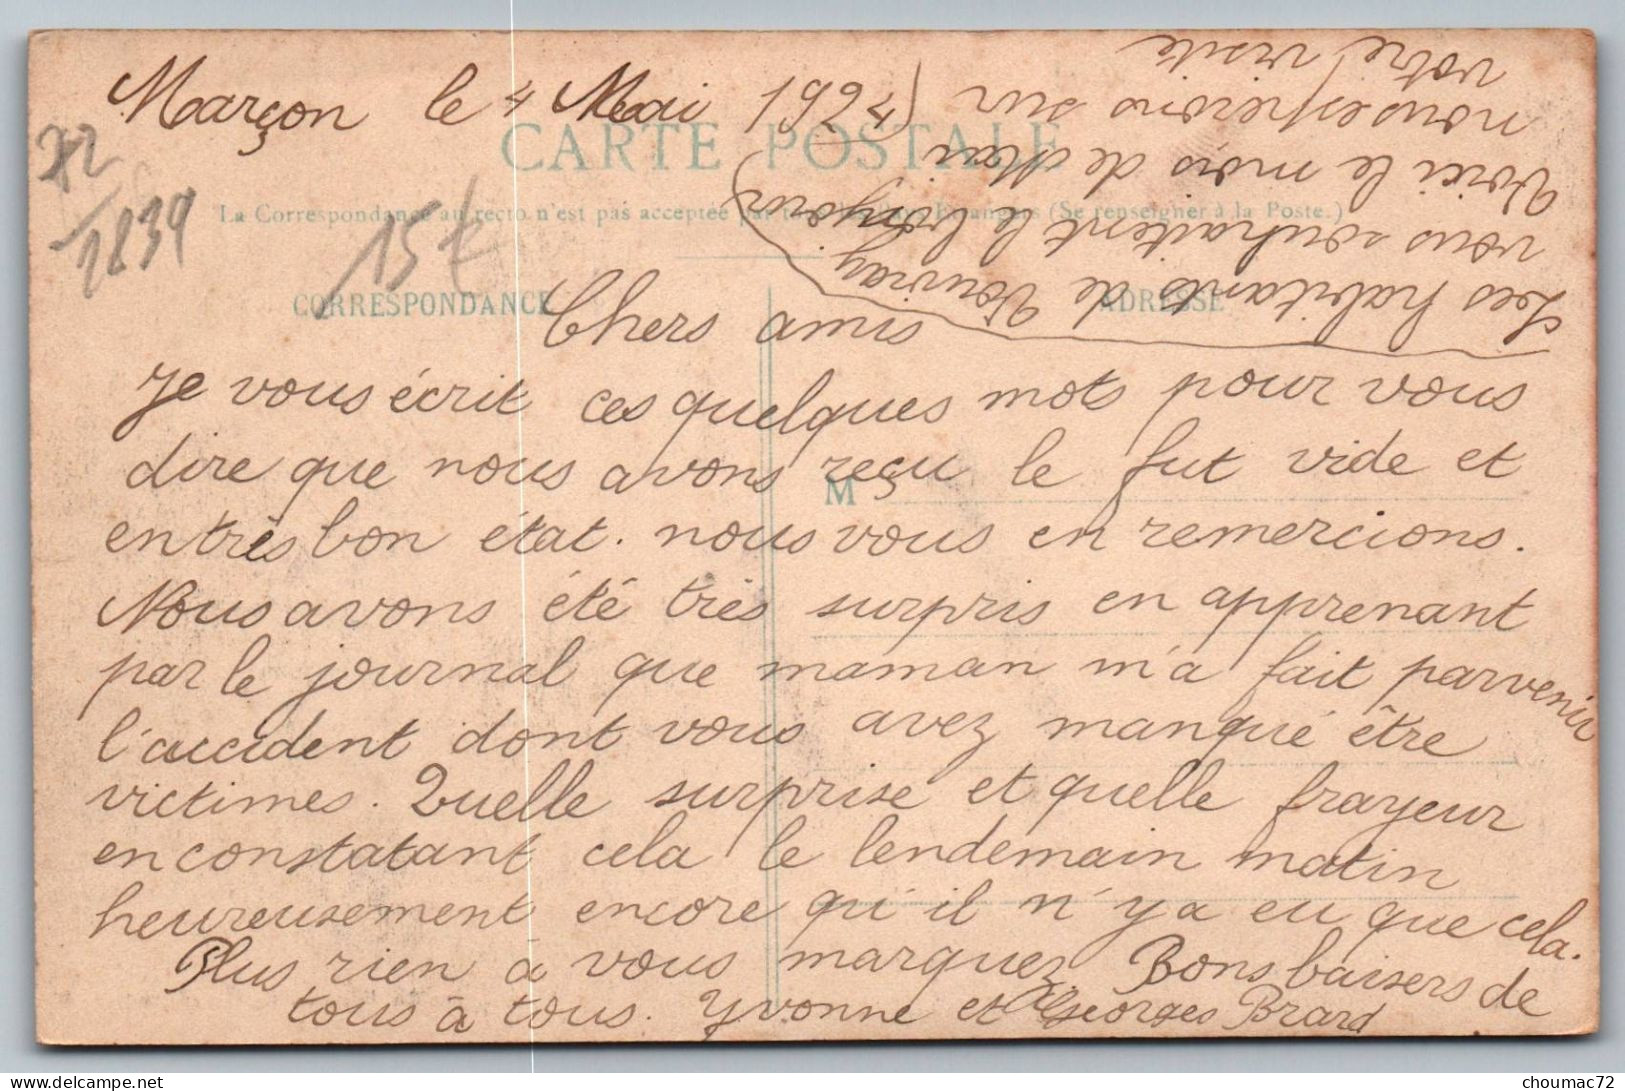 Marçon le 4 Mai 1924
CARTE POSTALE
72
1839
15€
La Correspondance au recto n'est pas acceptée par tous les Pays Étrangers (Se renseigner à la Poste.)
CORRESPONDANCE
ADRESSE
M
Chers amis
Je vous écrit ces quelques mots pour vous
dire que nous avons reçu le fut vide et
en très bon état. nous vous en remercions.
Nous avons été très surpris en apprenant
par le journal que maman m'a fait parvenir
l'accident dont vous avez manqué être
victimes. Quelle surprise et quelle frayeur
en constatant cela le lendemain matin
heureusement encore qu'il n'y a eu que cela.
Plus rien à vous marquez. Bons baisers de
tous à tous. Yvonne et Georges Brard
Les habitants de Vouvray
vous souhaitent le bonjour
Voici le mois de Mai
nous esperons sur
votre visite
choumac72